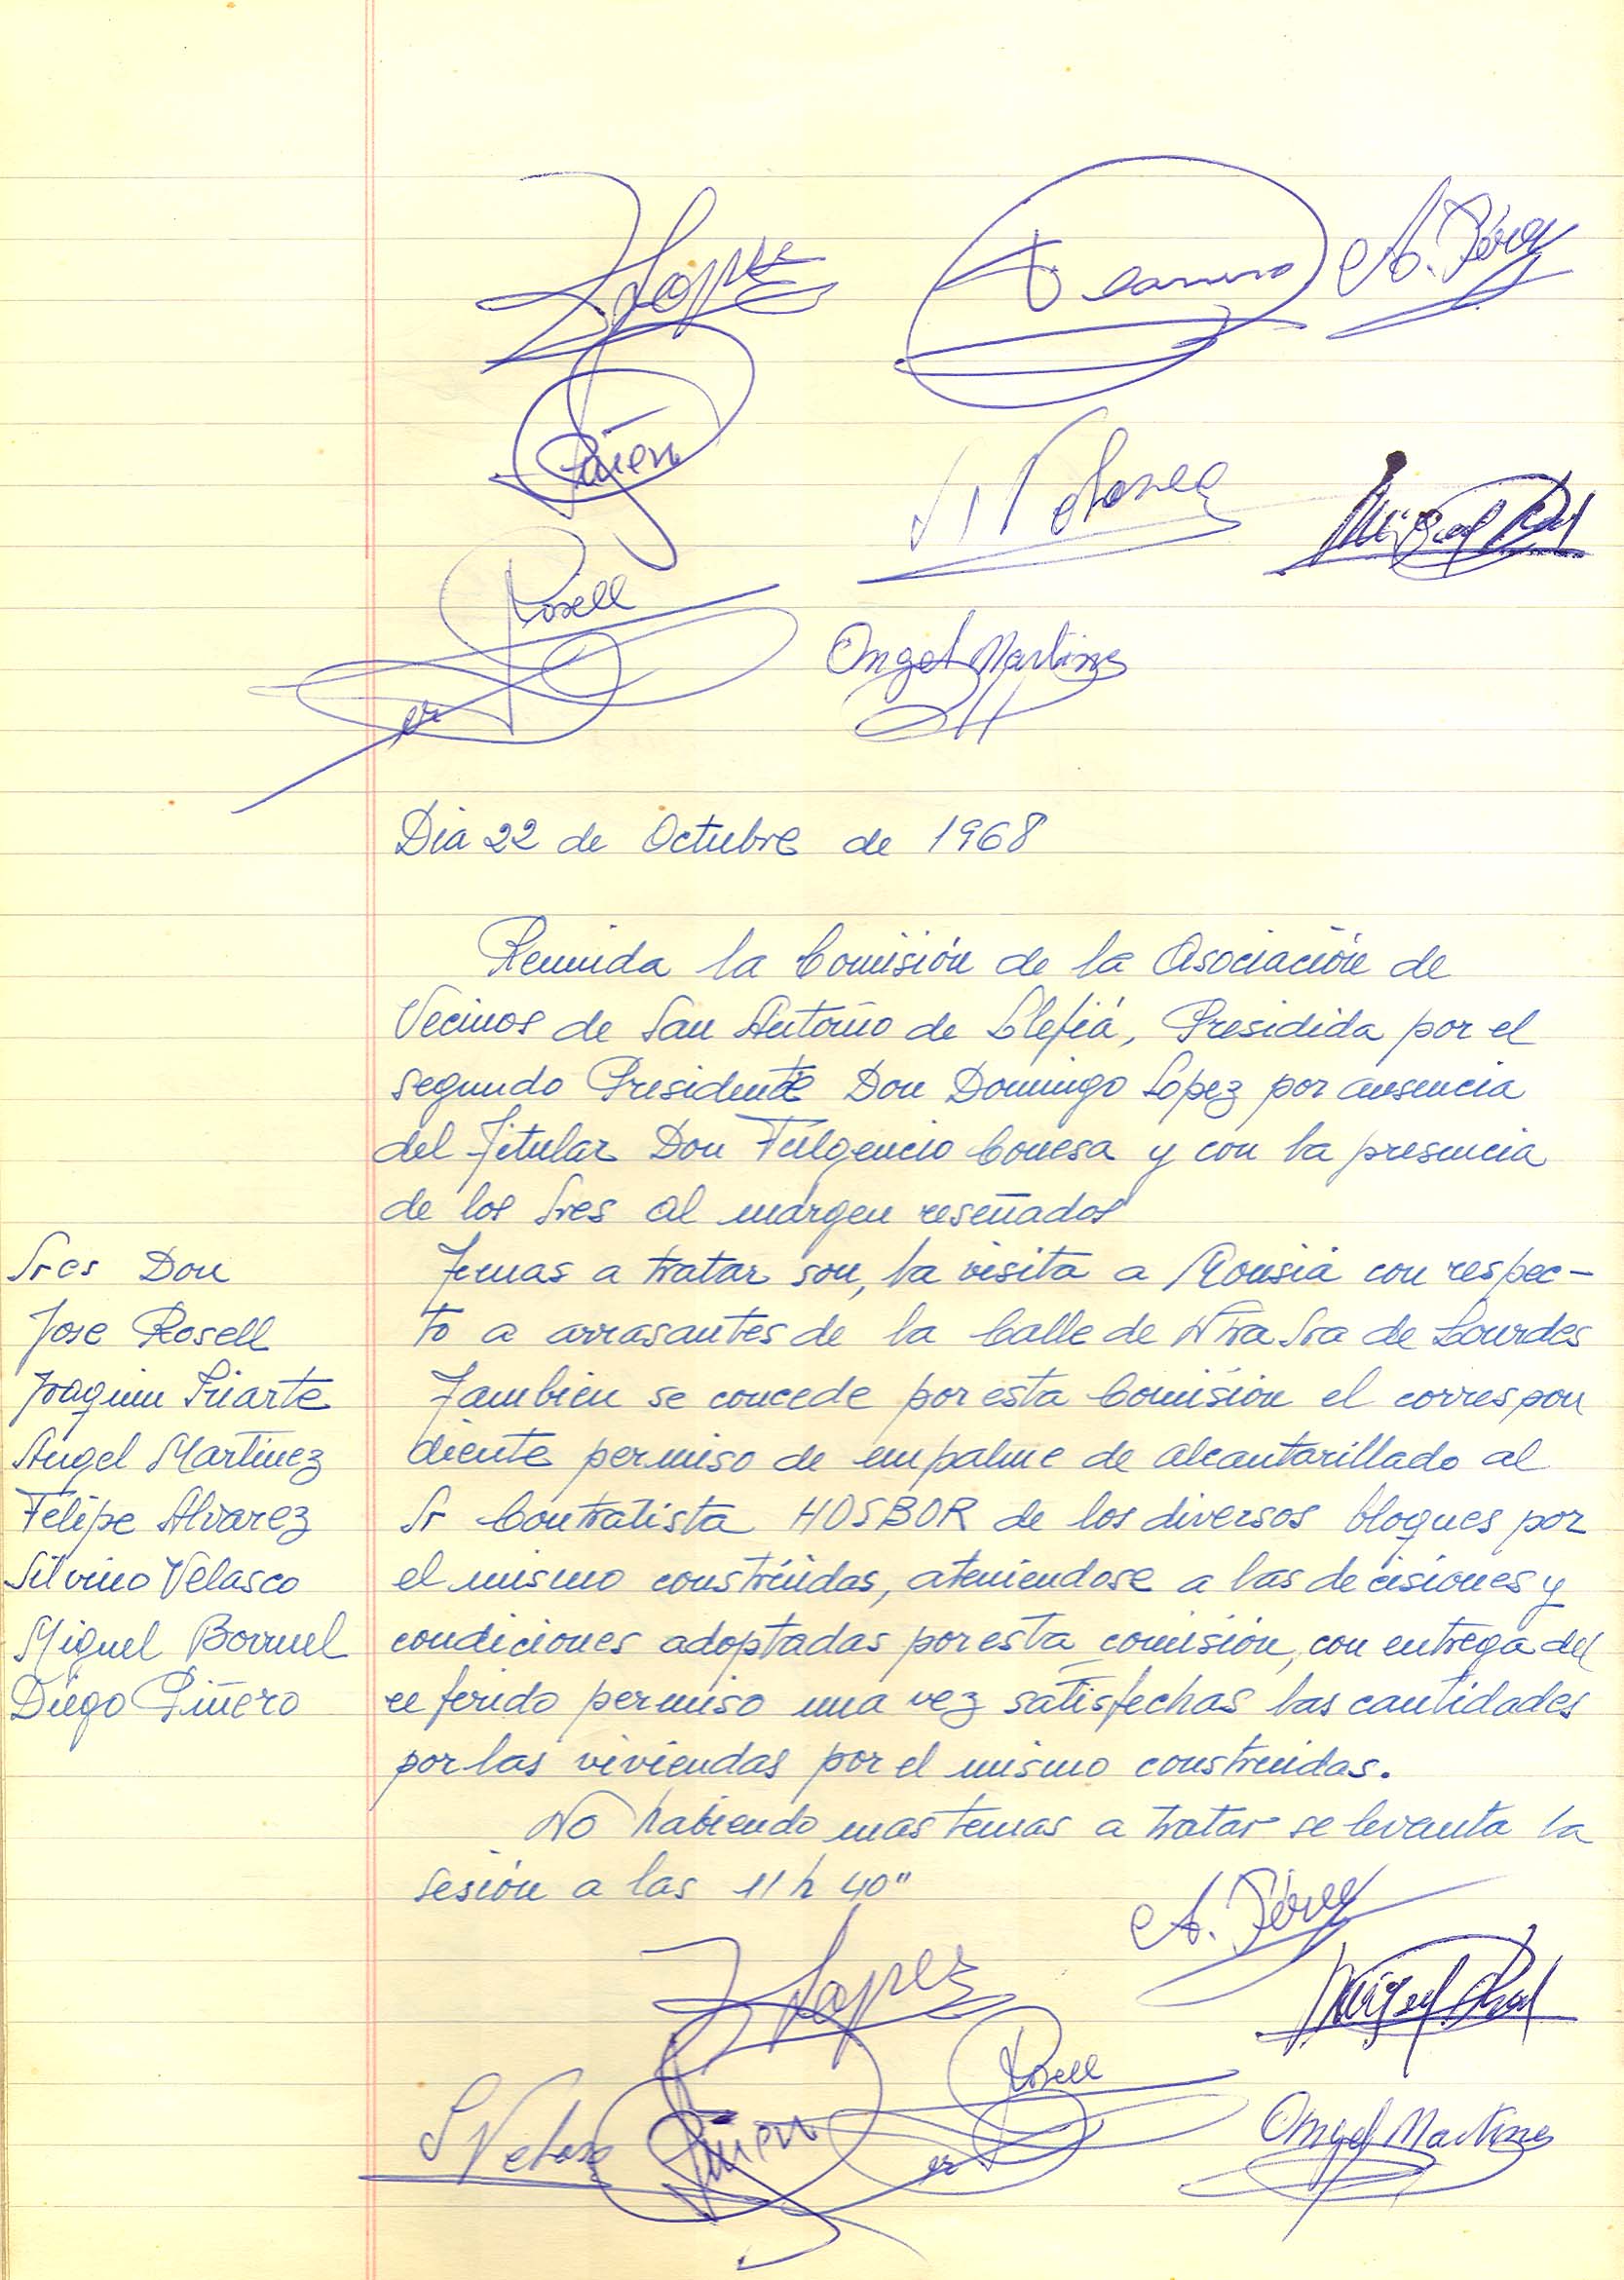 Lopez
A. Pérez
Rosell
Angel Martinez
Dia 22 de Octubre de 1968
Reunida la Comisión de la Asociación de
Vecinos de San Antonio de Llefiá, Presidida por el
segundo Presidente Don Domingo Lopez por ausencia
del Titular Don Fulgencio Conesa y con la presencia
de los Sres al margen reseñados
Sres Don
Jose Rosell
Joaquin Iriarte
Angel Martinez
Felipe Alvarez
Silvino Velasco
Miguel Borruel
Diego Piñero
Temas a tratar son, la visita a Monsiá con respec-
to a arrasantes de la Calle de Ntra Sra de Lourdes
Tambien se concede por esta Comisión el correspon
diente permiso de empalme de alcantarillado al
Sr Contratista HOSBOR de los diversos bloques por
el mismo construidas, ateniendose a las decisiones y
condiciones adoptadas por esta comisión, con entrega del
referido permiso una vez satisfechas las cantidades
por las viviendas por el mismo construidas.
No habiendo mas temas a tratar se levanta la
sesión a las 11 h 40"
A. Pérez
Lopez
Rosell
S Velasco
Angel Martinez